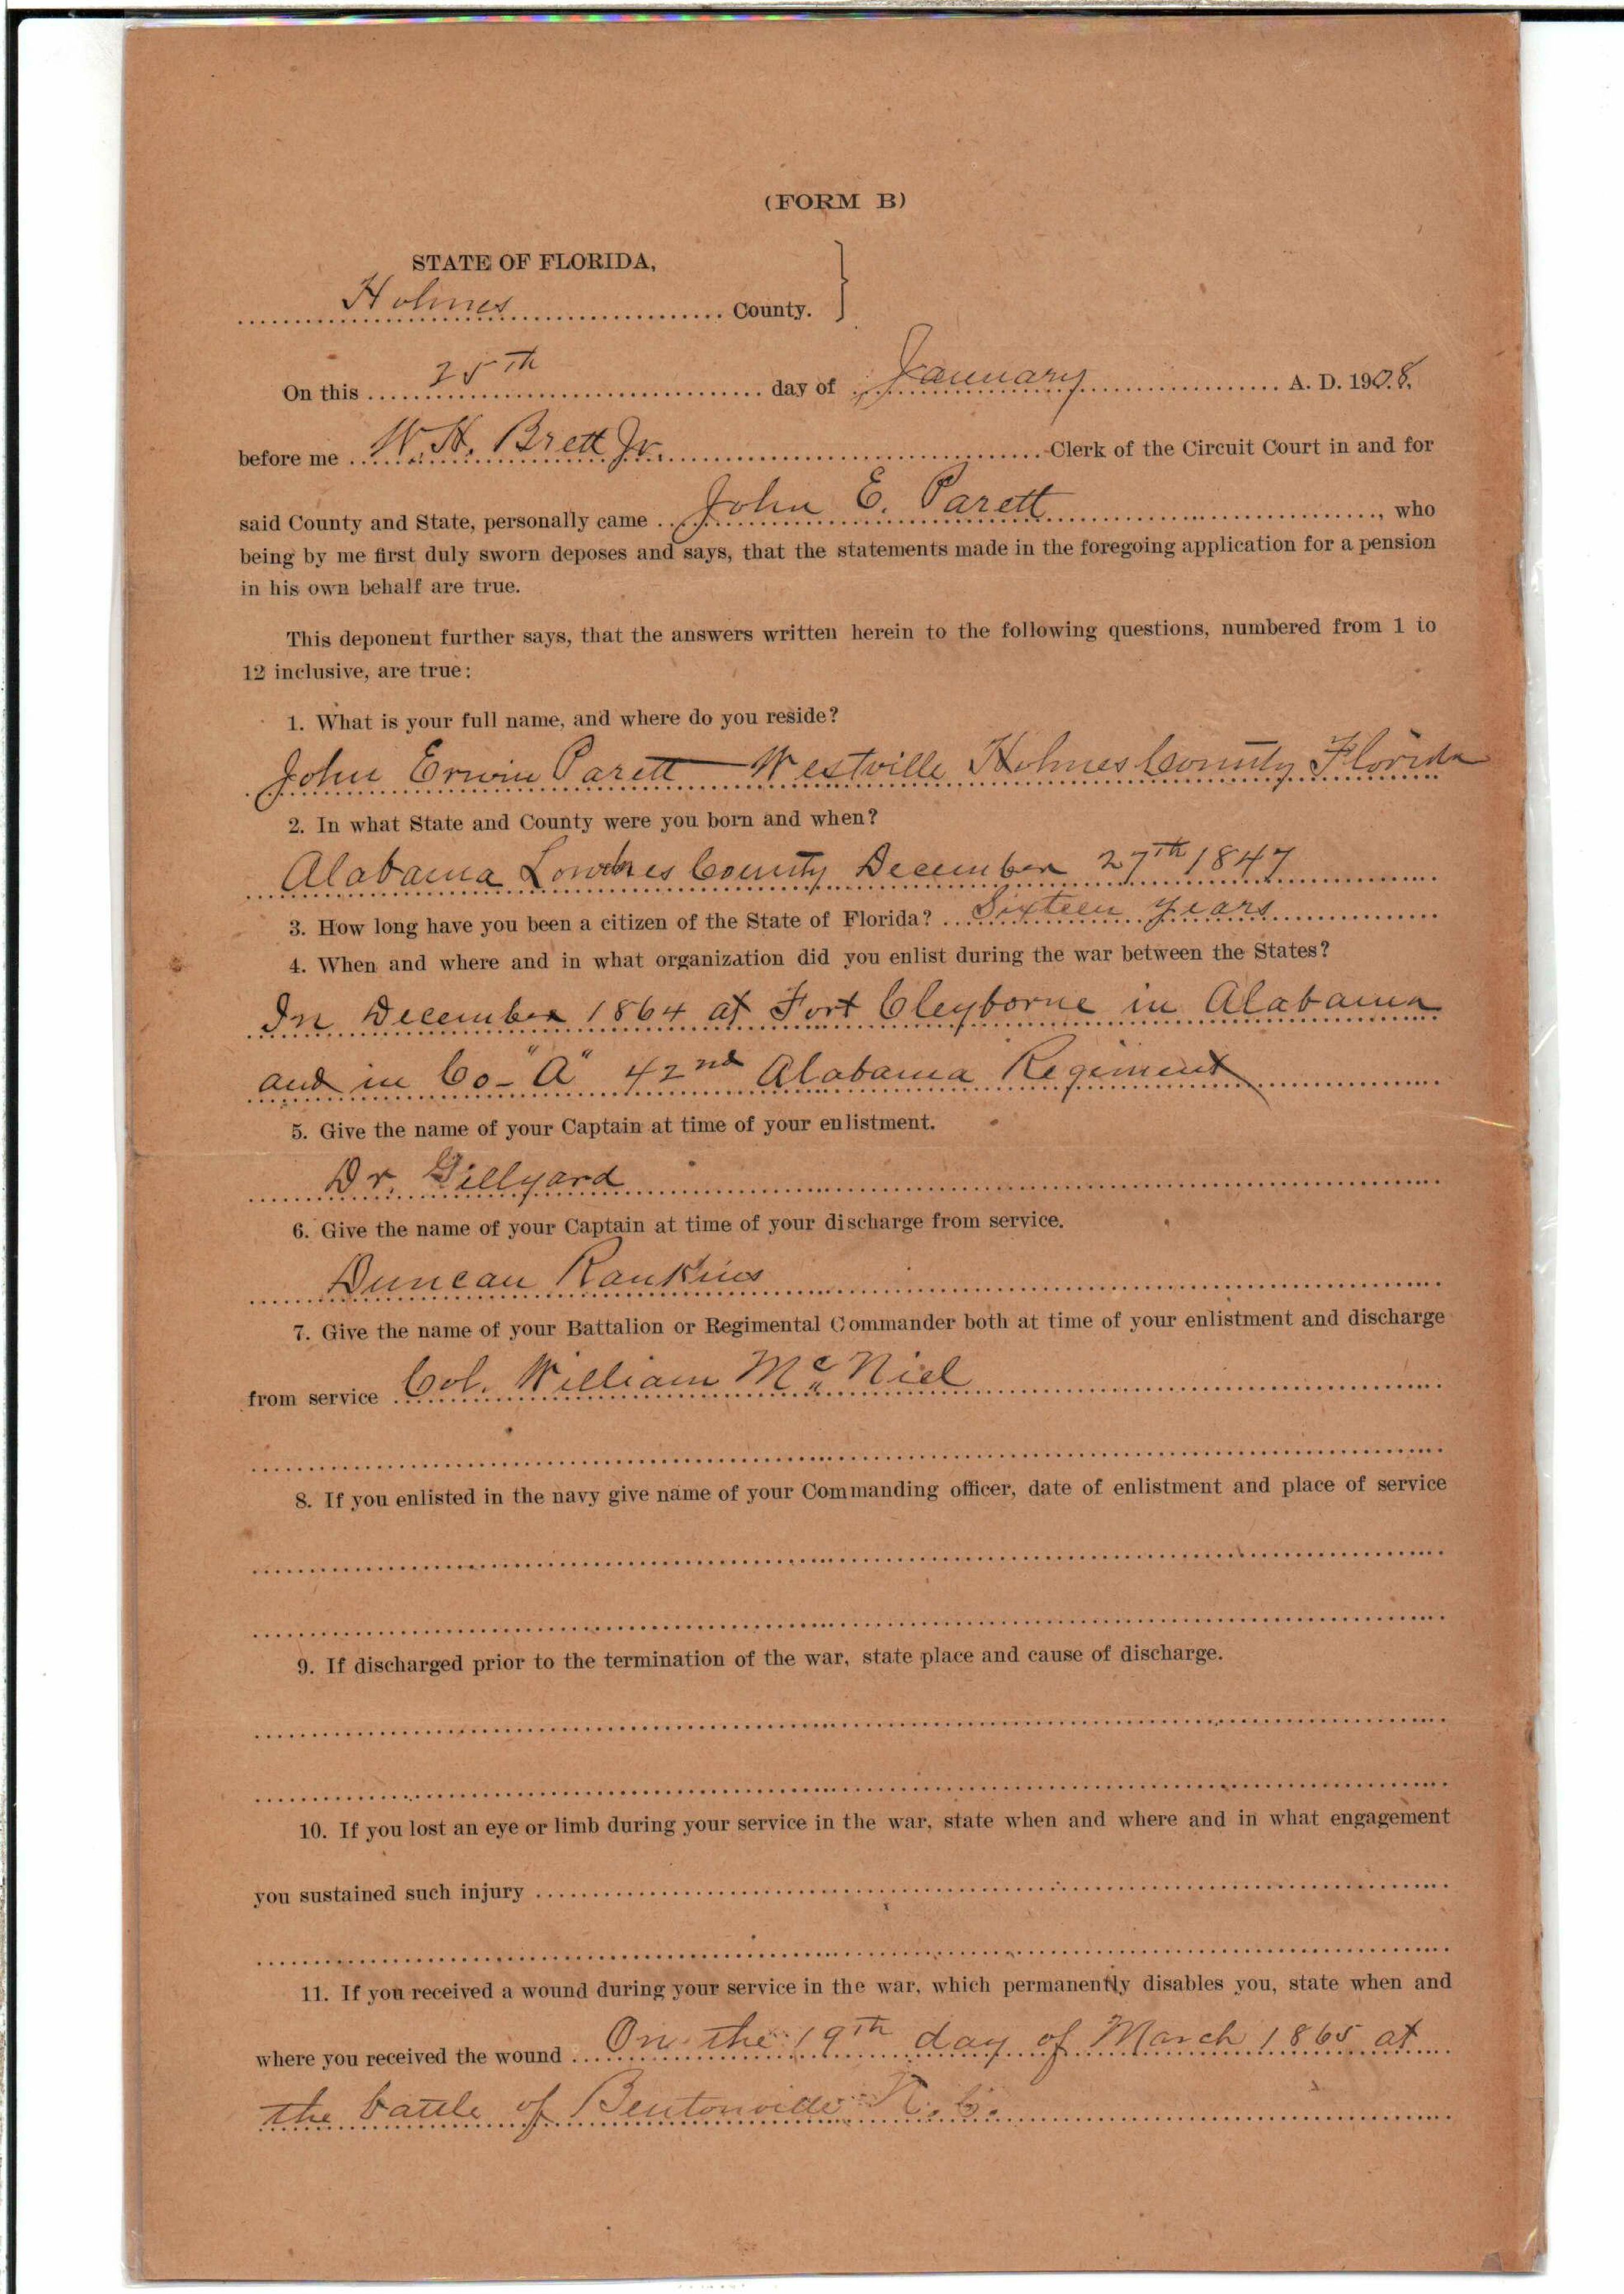 (FORM B)
STATE OF FLORIDA,
Holmes County.
On this 25th day of January A. D. 1908.
before me W. H. Brett Jr. Clerk of the Circuit Court in and for
said County and State, personally came John E. Parett, who
being by me first duly sworn deposes and says, that the statements made in the foregoing application for a pension
in his own behalf are true.
This deponent further says, that the answers written herein to the following questions, numbered from 1 to
12 inclusive, are true:
1. What is your full name, and where do you reside?
John Erwin Parett — Westville Holmes County Florida
2. In what State and County were you born and when?
Alabama Lowndes County December 27th 1847
3. How long have you been a citizen of the State of Florida? Sixteen years
4. When and where and in what organization did you enlist during the war between the States?
In December 1864 at Fort Cleyborne in Alabama
and in Co- "A" 42nd Alabama Regiment
5. Give the name of your Captain at time of your enlistment.
Dr. Gillyard
6. Give the name of your Captain at time of your discharge from service.
Duncan Rankins
7. Give the name of your Battalion or Regimental Commander both at time of your enlistment and discharge
from service Col. William McNiel
8. If you enlisted in the navy give name of your Commanding officer, date of enlistment and place of service
9. If discharged prior to the termination of the war, state place and cause of discharge.
10. If you lost an eye or limb during your service in the war, state when and where and in what engagement
you sustained such injury
11. If you received a wound during your service in the war, which permanently disables you, state when and
where you received the wound On the 19th day of March 1865 at
the battle of Bentonville N. C.